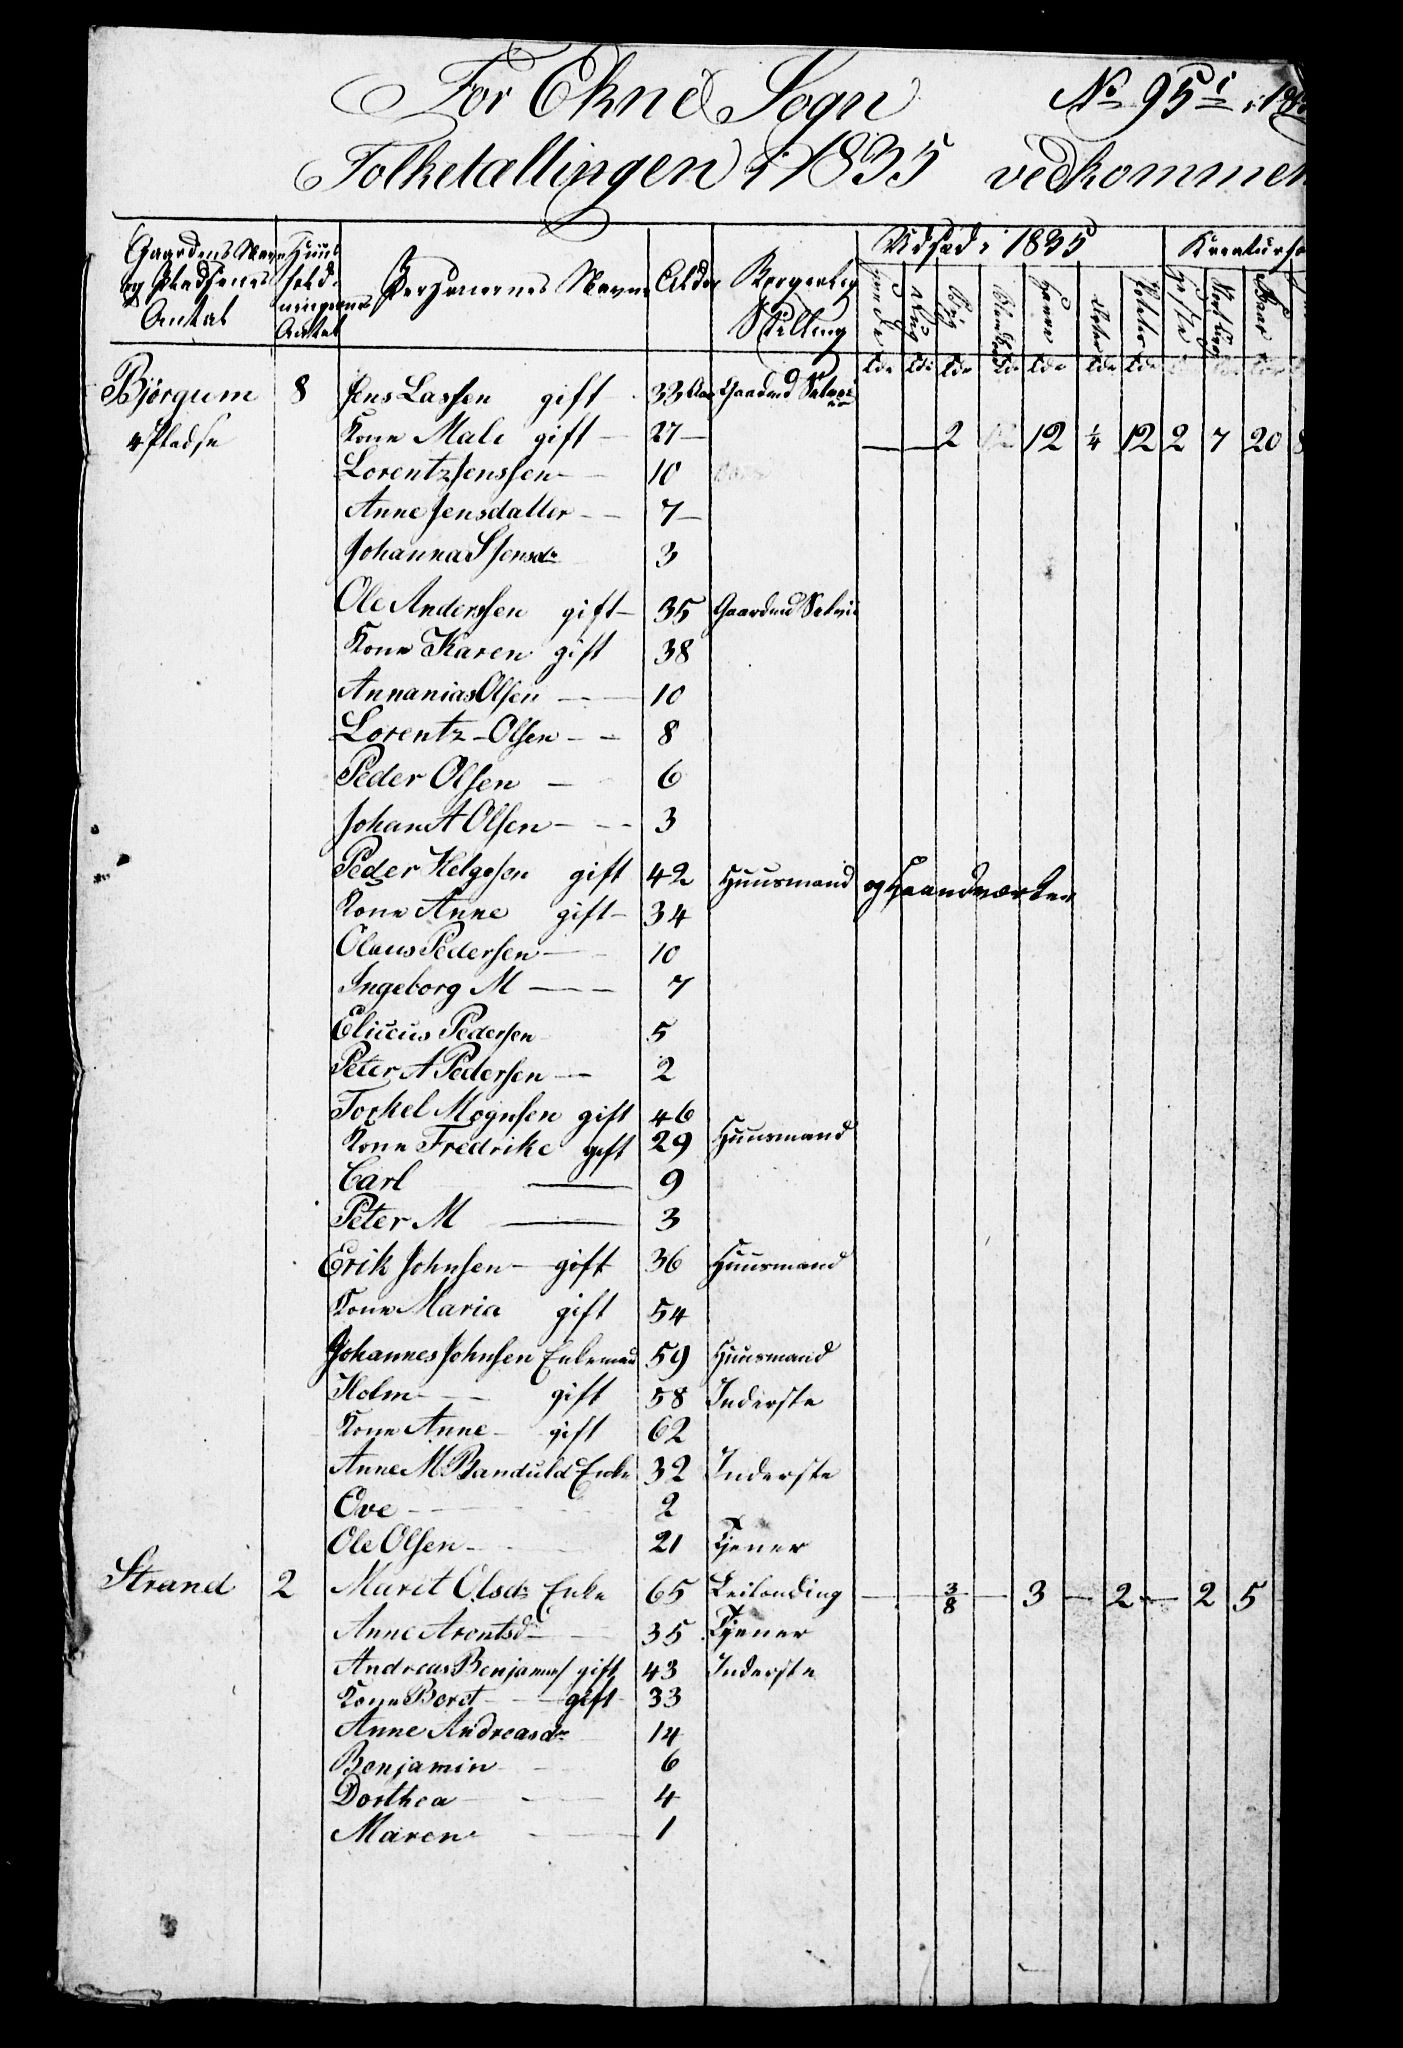 For Ekne Sogn No 95
Folketællingen i 1835 vedkommen
Gaardens Navn og Pladsenes Antal
Huusholdningernes Antal
Personernes Navne
Alder
Borgerlig Stilling
Udsæd i 1835
Kreaturho
Hvede
Rug
Byg
Bland
Havre
Erter
Poteter
Heste
Faar
tdr tdr tdr tdr tdr tdr tdr
Bjørgum 8 Jens Lassen gift 33 Aar Gaardmd Selvei
4 Pladse Kone Mali gift 27 — — 2 12 12 1/4 12 2 7 20 8
Lorentz Jenssen 10
Anne Jensdatter 7
Johanna S Jensdr 3
Ole Anderssen gift 35 Gaardmd Selvei
Kone Karen gift 38
Annanias Olsen 10
Lorentz Olsen 8
Peder Olsen 6
Johan A Olsen 3
Peder Helgesen gift 42 Huusmand og Haandværker
Kone Anne gift 34
Olaus Pedersen 10
Ingeborg M 7
Eliseus Pedersen 5
Peter A Pedersen 2
Torkel Mognsen gift 46
Kone Fredrike gift 29 Huusmand
Carl 9
Peter M 3
Erik Johnsen gift 36 Huusmand
Kone Maria gift 54
Johannes Johnsen Enkemand 59 Huusmand
Holm gift 58 Inderste
Kone Anne gift 62
Anne M Banduld Enke 32 Inderste
Ove 2
Ole Olsen 21 Tjener
Strand 2 Marit Olsdr Enke 65 Leilending — — 3/8 — 3 — 2 — 2 5
Anne Arentsd 35 Tjener
Andreas Benjamins gift 43 Inderste
Kone Beret gift 33
Anne Andreasdr 14
Benjamin 6
Dorthea 4
Maren 1